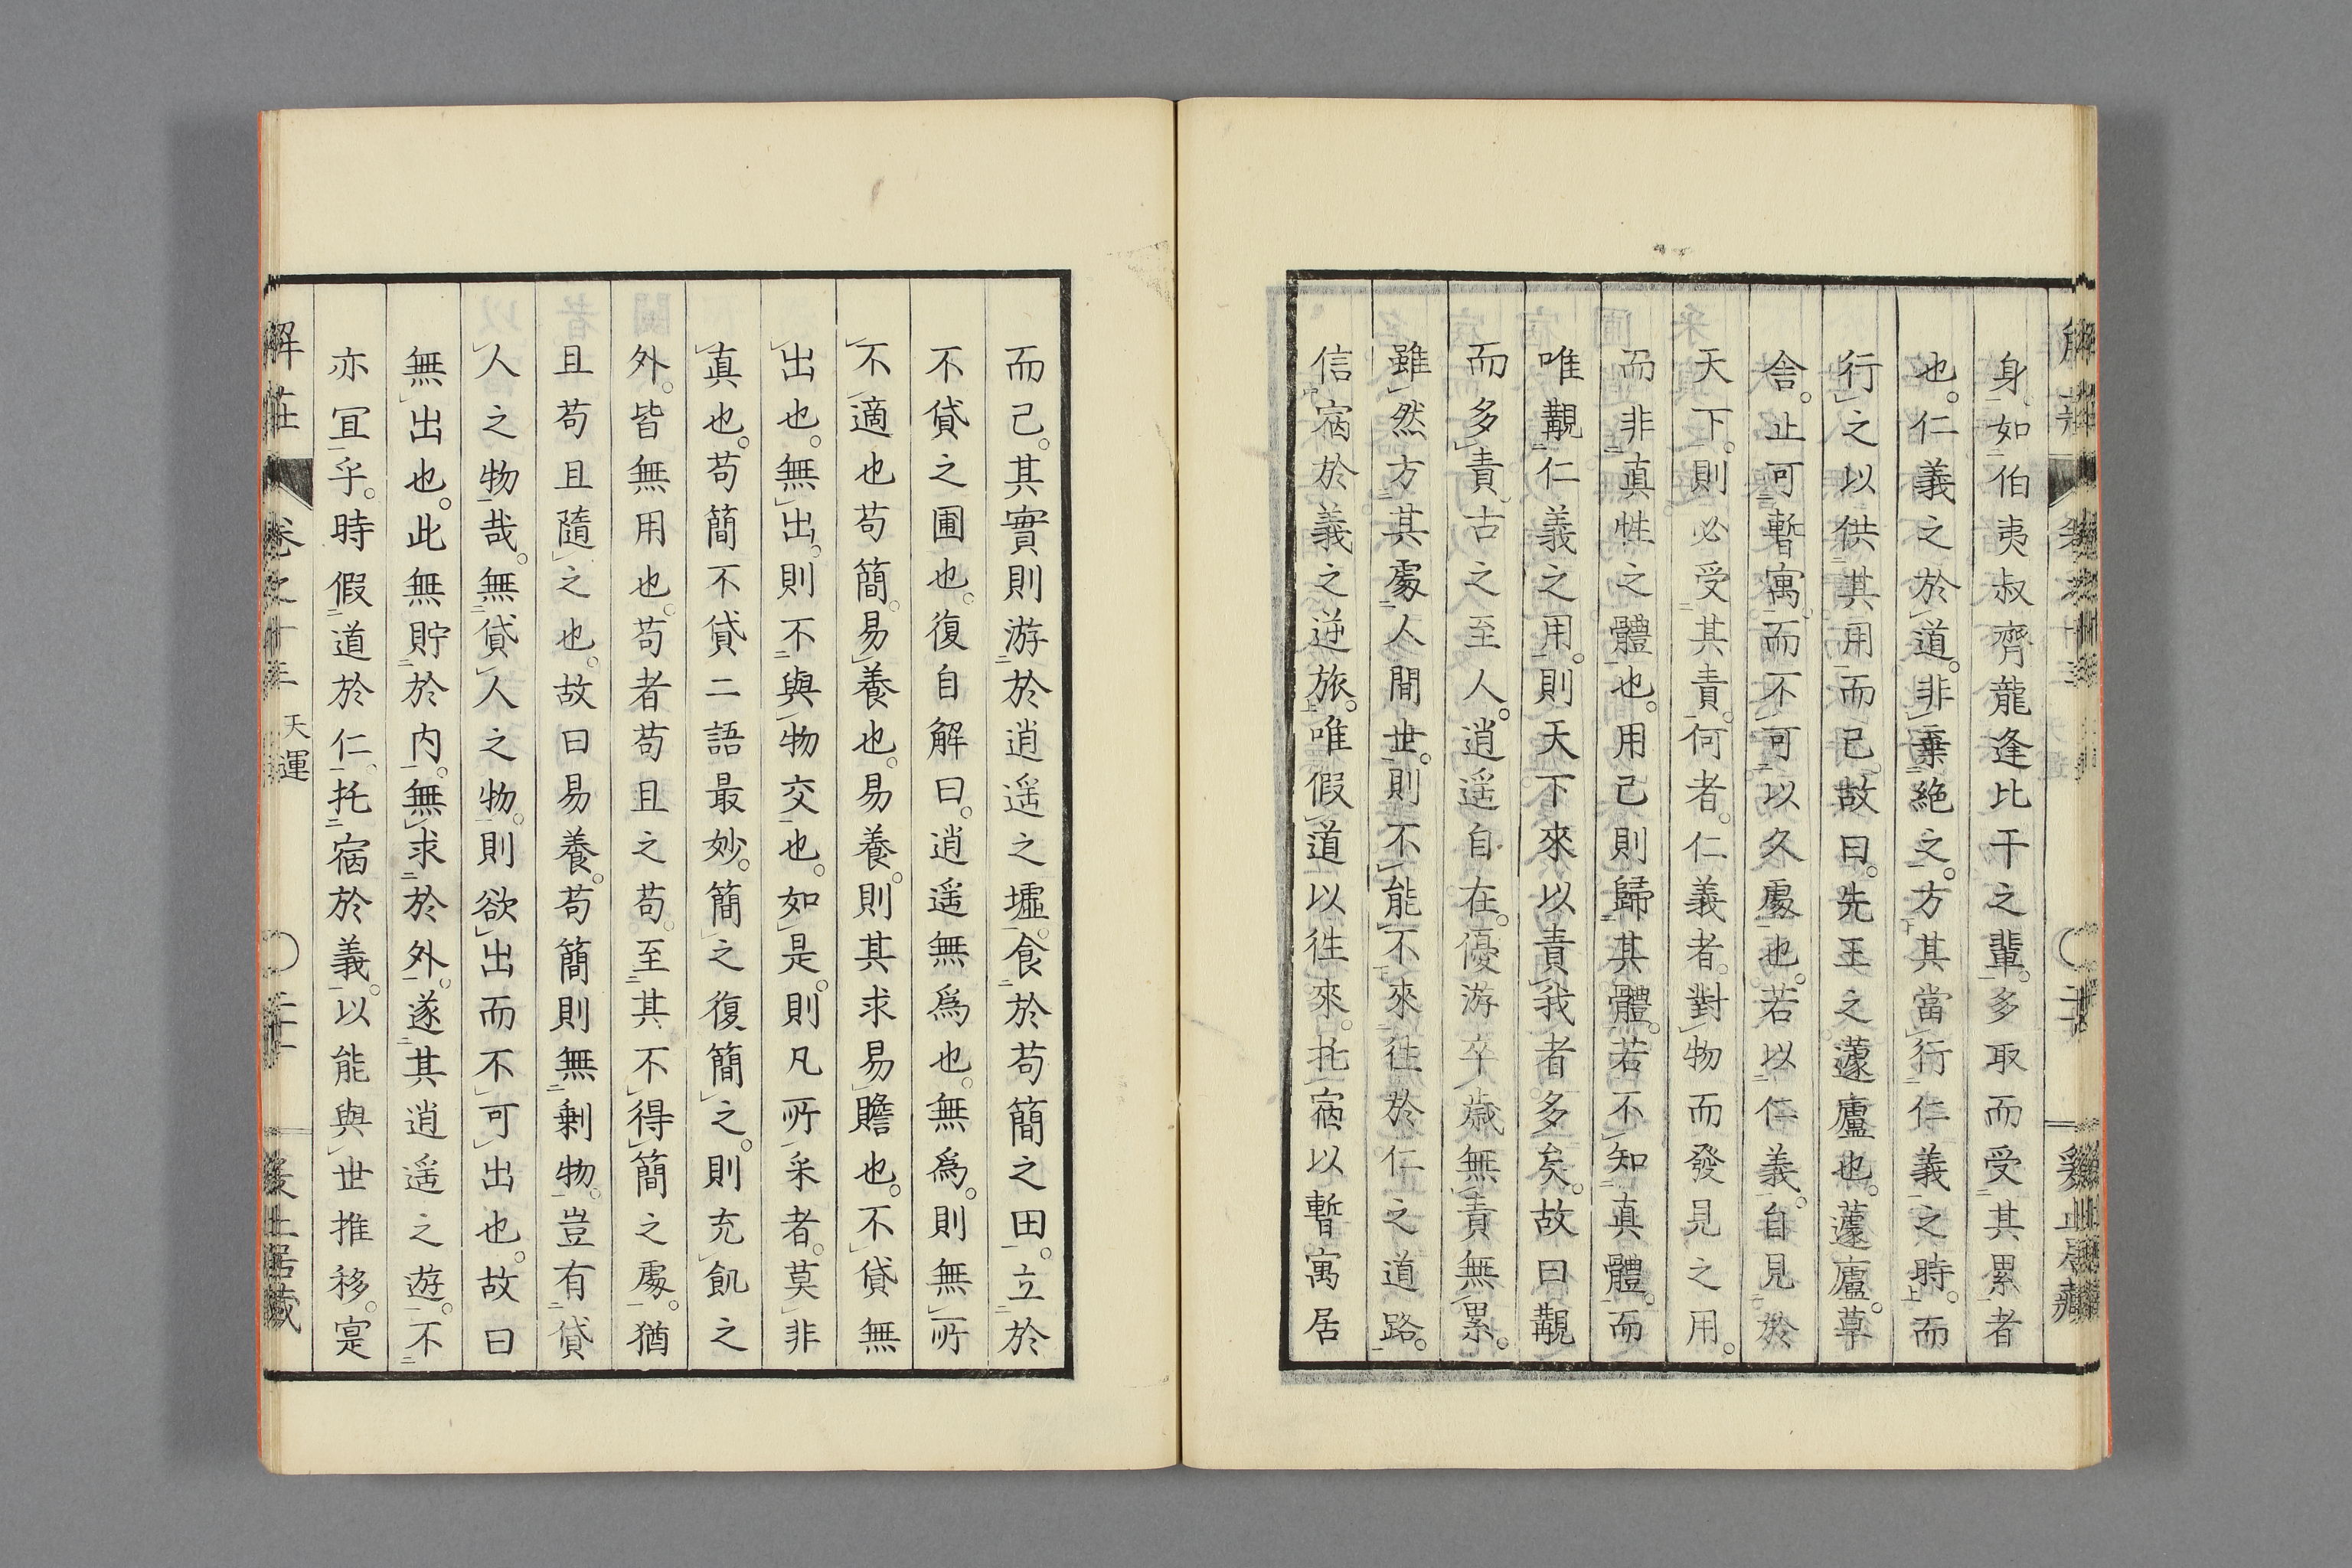 身如伯夷叔齊龍逢比干之輩。多取而受其累者
也。仁義之於道。非棄絶之。方其當行仁義之時。而
行之以供其用而已。故曰。先王之蘧廬也。蘧廬。草
舎。止可暫寓而不可以久處也。若以仁義。自見於
天下。則必受其責。何者。仁義者。對物而發見之用。
而非真性之體也。用己則歸其體。若不知真體。而
唯覯仁義之用。則天下來以責我者多矣。故曰覯
而多責。古之至人。逍遥自在。優游卒歳無責無累。
雖然方其處人間世。則不能不來往於仁之道路。
信宿於義之逆旅。唯假道以往來。托宿以暫寓居
而已。其實則游於逍遥之墟。食於苟簡之田。立於
不貸之圃也。復自解曰。逍遥無爲也。無爲。則無所
不適也苟簡。易養也。易養。則其求易贍也。不貸無
出也。無出。則不與物交也。如是。則凡所采者。莫非
真也。苟簡不貸二語最妙。簡之復簡之。則充飢之
外。皆無用也。苟者苟且之苟。至其不得簡之處。猶
且苟且隨之也。故曰易養。苟簡則無剰物。豈有貸
人之物哉。無貸人之物。則欲出而不可出也。故曰
無出也。此無貯於内。無求於外。遂其逍遥之遊。不
亦宜乎。時假道於仁。托宿於義。以能與世推移。寔
解莊 卷之十三 天運